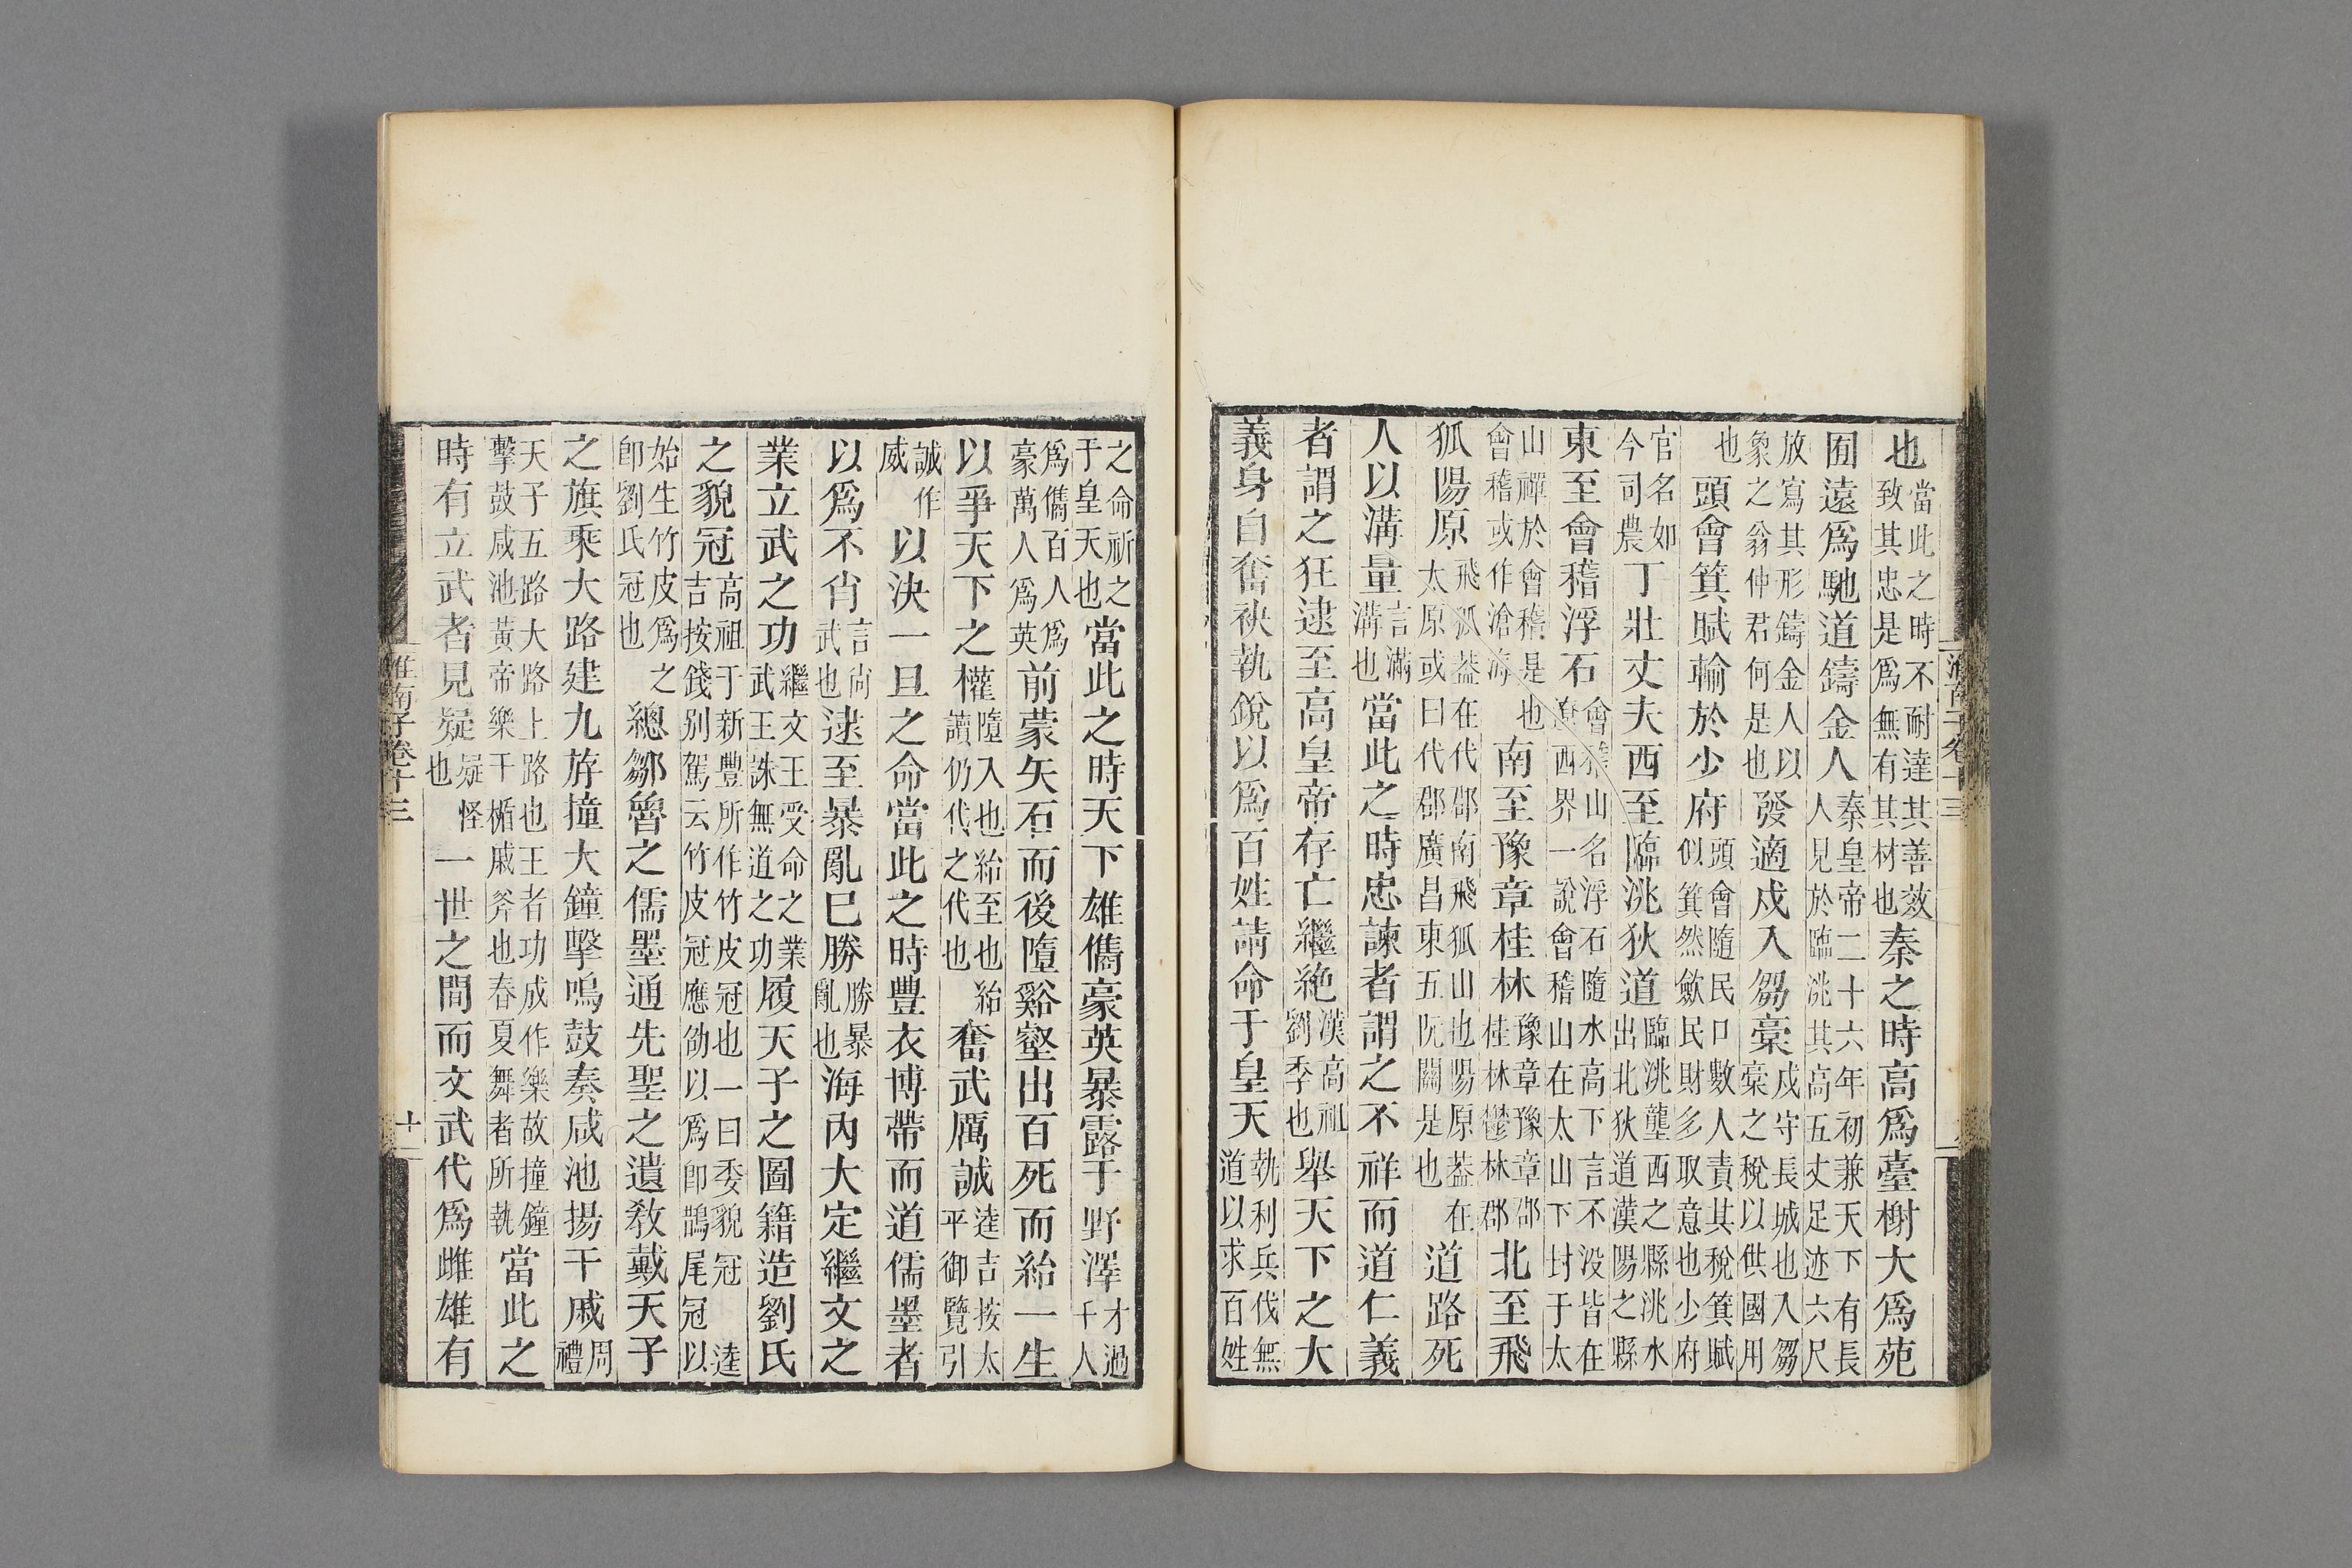 也當此之時不耐達其善效致其忠是爲無有其材也秦之時高爲臺榭大爲苑
囿遠爲馳道鑄金人秦皇帝二十六年初兼天下有長人見於臨洮其高五丈足迹六尺
放寫其形鑄金人以象之翁仲君何是也發適戍入芻稾戍守長城也入芻稾之稅以供國用
也頭會箕賦輸於少府頭會隨民口數人責其稅箕賦似箕然斂民財多取意也少府
官名如今司農丁壯丈夫西至臨洮狄道臨洮壟西之縣洮水出北狄道漢陽之縣
東至會稽浮石會稽山名浮石隨水高下言不没皆在遼西界一說會稽山在太山下封于太
山禪於會稽是也會稽或作滄海南至豫章桂林豫章豫章郡桂林鬱林郡北至飛
狐陽原飛狐葢在代郡南飛狐山也陽原葢在太原或曰代郡廣昌東五阮關是也道路死
人以溝量言滿溝也當此之時忠諫者謂之不祥而道仁義
者謂之狂逮至高皇帝存亡繼絶漢高祖劉季也舉天下之大
義身自奮袂執銳以爲百姓請命于皇天執利兵伐無道以求百姓
之命祈之于皇天也當此之時天下雄儁豪英暴露于野澤才過千人
爲儁百人爲豪萬人爲英前蒙矢石而後墮谿壑出百死而紿一生
以爭天下之權墮入也紿至也紿讀仍代之代也奮武厲誠逵吉按太平御覽引
誠作威以決一旦之命當此之時豐衣博帶而道儒墨者
以爲不肖言尚武也逮至暴亂已勝勝暴亂也海內大定繼文之
業立武之功繼文王受命之業武王誅無道之功履天子之圖籍造劉氏
之貌冠高祖于新豐所作竹皮冠也一曰委貌冠逵吉按錢别駕云竹皮冠應劭以爲卽鵲尾冠以
始生竹皮爲之卽劉氏冠也總鄒魯之儒墨通先聖之遺教戴天子
之旗乘大路建九斿撞大鐘擊鳴鼓奏咸池揚干戚周禮
天子五路大路上路也王者功成作樂故撞鐘擊鼓咸池黃帝樂干楯戚斧也春夏舞者所執當此之
時有立武者見疑疑怪也一世之間而文武代爲雌雄有
淮南子卷十三
十二